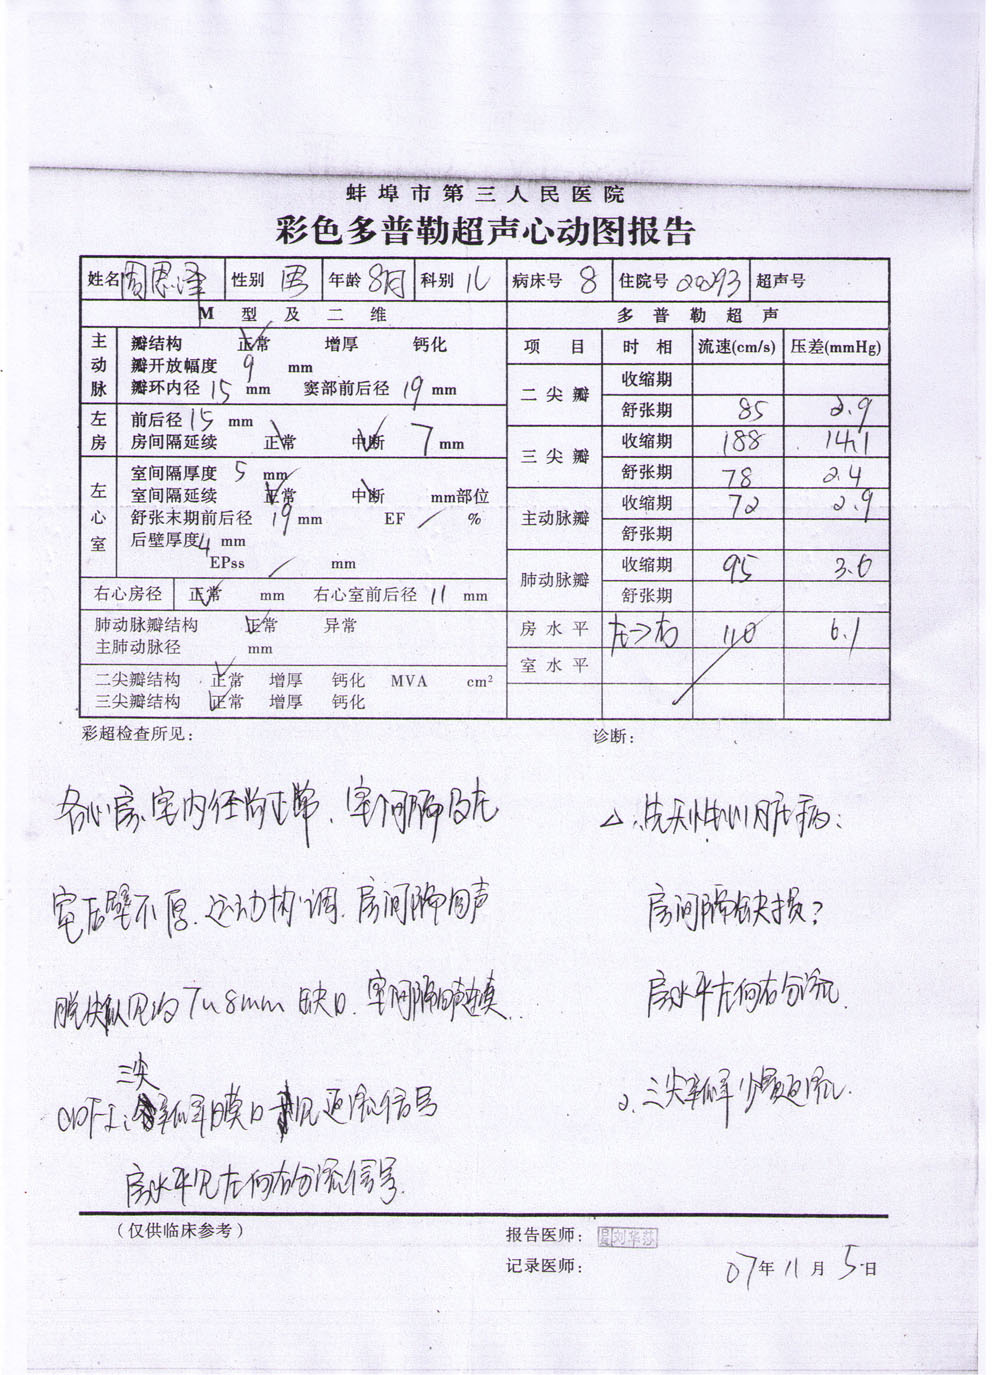 蚌埠市第三人民医院
彩色多普勒超声心动图报告
姓名 周恩泽 性别 男 年龄 8月 科别 儿 病床号 8 住院号 20293 超声号
M 型 及 二 维 多 普 勒 超 声
主动脉 瓣结构 正常 增厚 钙化
瓣开放幅度 9 mm
瓣环内径 15 mm 窦部前后径 19 mm
左房 前后径 15 mm
房间隔延续 正常 中断 7 mm
左心室 室间隔厚度 5 mm
室间隔延续 正常 中断 mm部位
舒张末期前后径 19 mm EF %
后壁厚度 4 mm
EPss mm
右心房径 正常 mm 右心室前后径 11 mm
肺动脉瓣结构 正常 异常
主肺动脉径 mm
二尖瓣结构 正常 增厚 钙化 MVA cm²
三尖瓣结构 正常 增厚 钙化
项 目 时 相 流速(cm/s) 压差(mmHg)
二尖瓣 收缩期
舒张期 85 2.9
三尖瓣 收缩期 188 14.1
舒张期 78 2.4
主动脉瓣 收缩期 72 2.9
舒张期
肺动脉瓣 收缩期 95 3.6
舒张期
房水平 左→右 110 6.1
室水平
彩超检查所见：
各心房、室内径尚正常、室间隔及左
室后壁不厚、运动协调、房间隔回声
脱失似见约7~8mm缺口、室间隔回声连续
CDFI：三尖瓣膜口见返流信号
房水平见左向右分流信号.
诊断：
△：先天性心脏病：
房间隔缺损？
房水平左向右分流.
2、三尖瓣少量返流.
(仅供临床参考)
报告医师： 刘华莎
记录医师：
07年11月5日